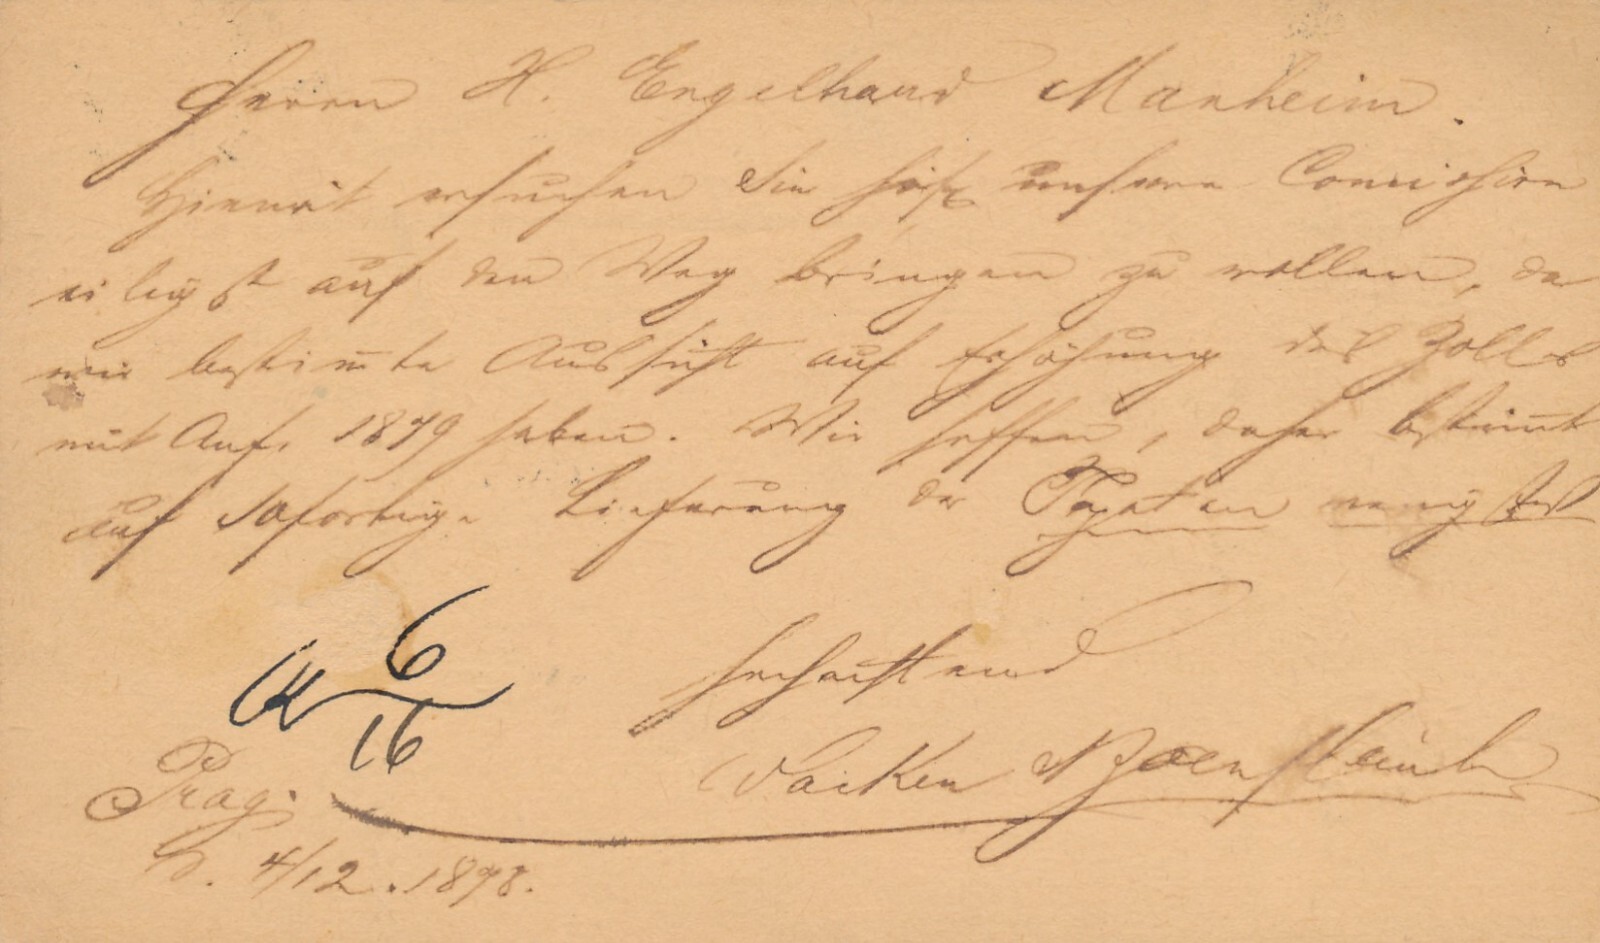 Herrn H. Engelhard Manheim.
Hiermit ersuchen Sie höfl unsere Comission
eiligst auf den Weg bringen zu wollen, da
wir bestimte Aussicht auf Erhöhung des Zolls
mit Anf. 1879 haben. Wir hoffen, daher bestimt
auf sofortige Lieferung der Tapeten
6
16
Hochachtend
Prag.
d. 4/12. 1878.